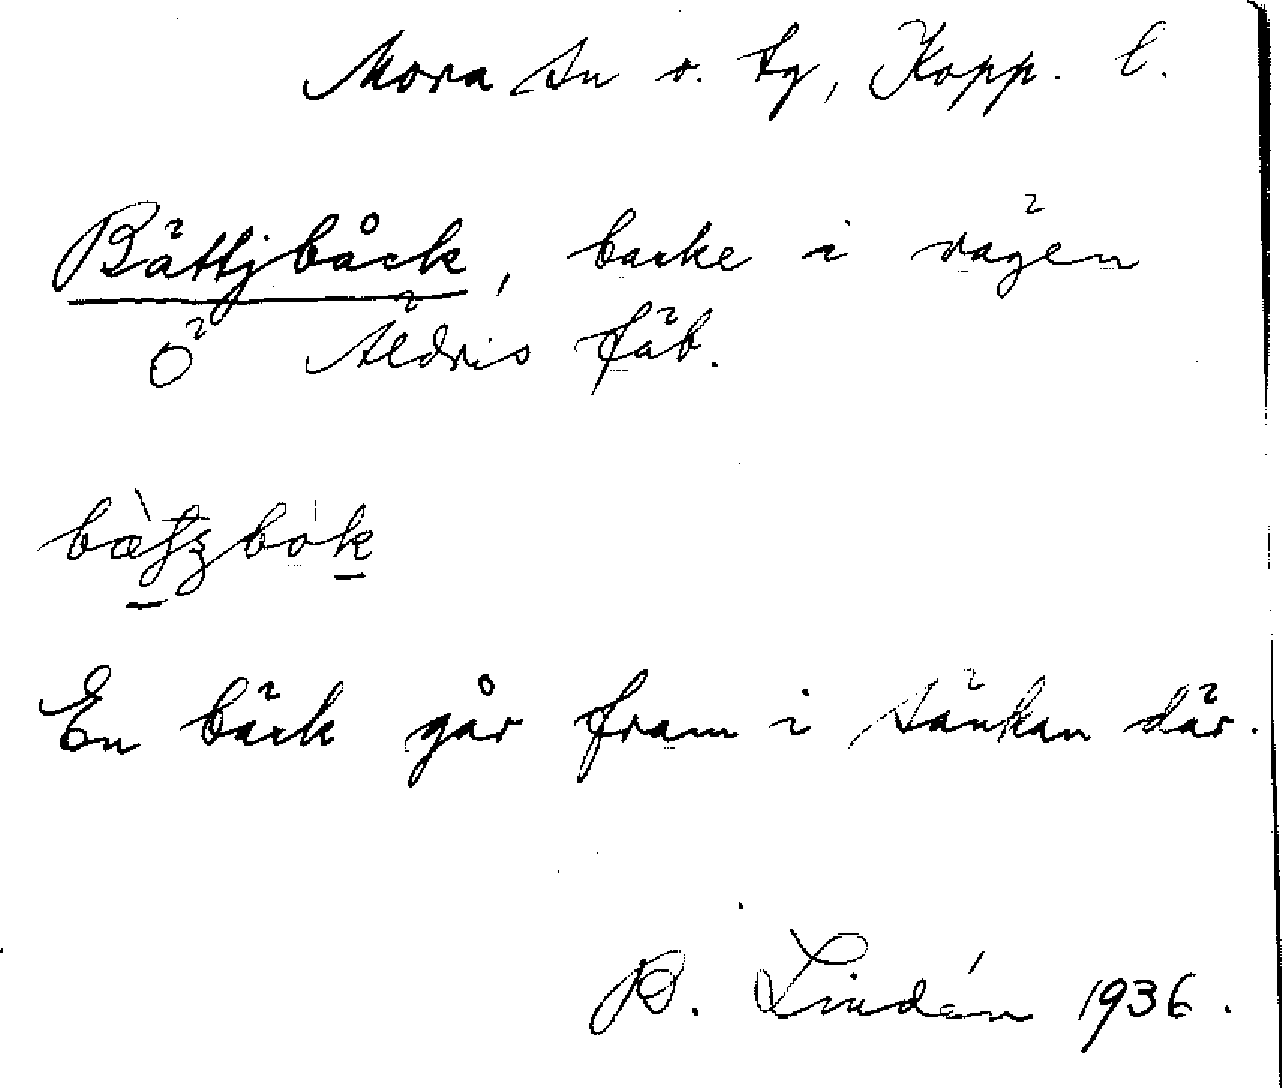 Mora sn o. tg, Kopp. l.
Bättjbåck, backe i vägen
Ö Äldris fäb.
En bäck går fram i sänkan där.
B. Lindén 1936.